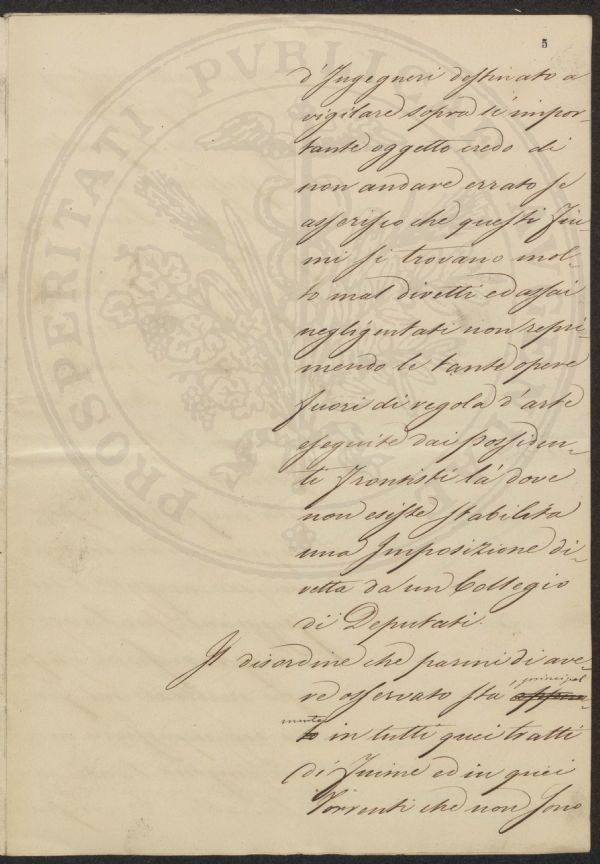 5
d'Ingegneri destinato a
vigilare sopra sì impor-
tante oggetto credo di
non andare errato se
asserisco che questi Fiu-
mi si trovano mol-
to mal diretti ed assai
negligentati non repri-
mendo le tante opere
fuori di regola d'arte
eseguite dai possiden-
ti Frontisti là dove
non esiste stabilita
una Imposizione di-
retta da un Collegio
di Deputati.
Il disordine che parmi di ave-
re osservato sta principal
mente in tutti quei tratti
di Fiume ed in quei
Torrenti che non sono
PROSPERITATI PVBLICAE